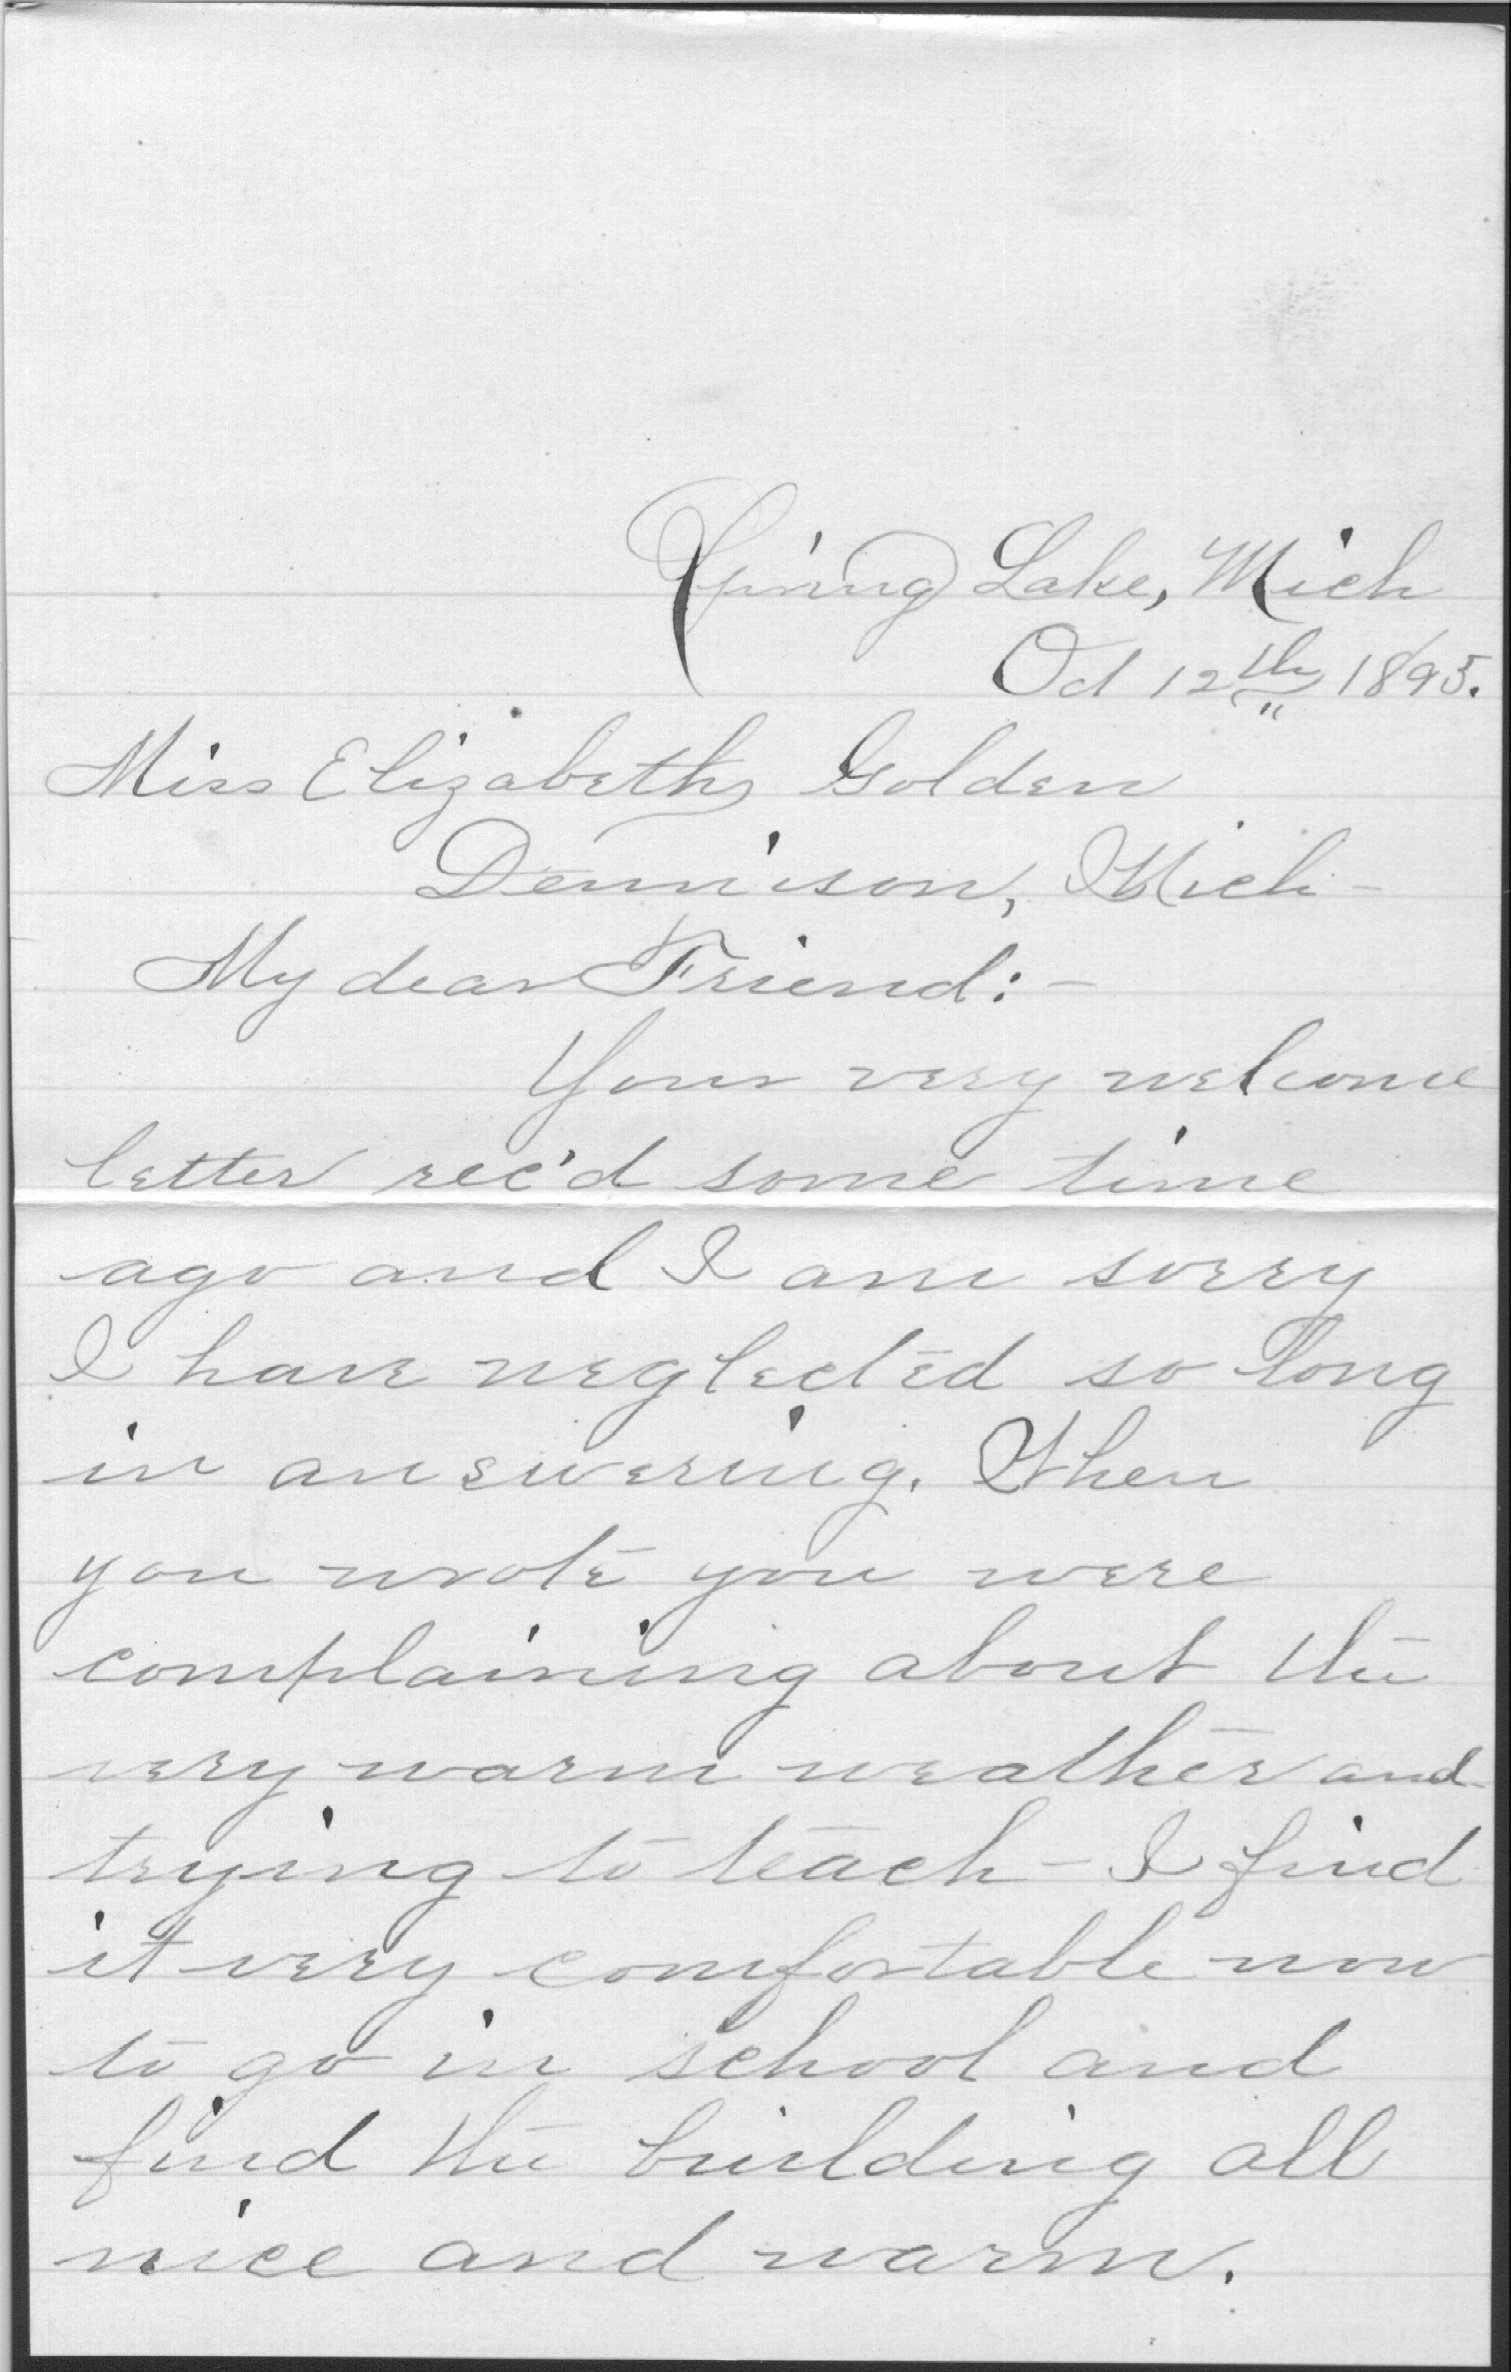 Spring Lake, Mich
Oct 12th 1895.
Miss Elizabeth Golden
Dennison, Mich-
My dear Friend:-
Your very welcome
letter rec'd some time
ago and I am sorry
I have neglected so long
in answering. When
you wrote you were
complaining about the
very warm weather and
trying to teach - I find
it very comfortable now
to go in school and
find the building all
nice and warm.